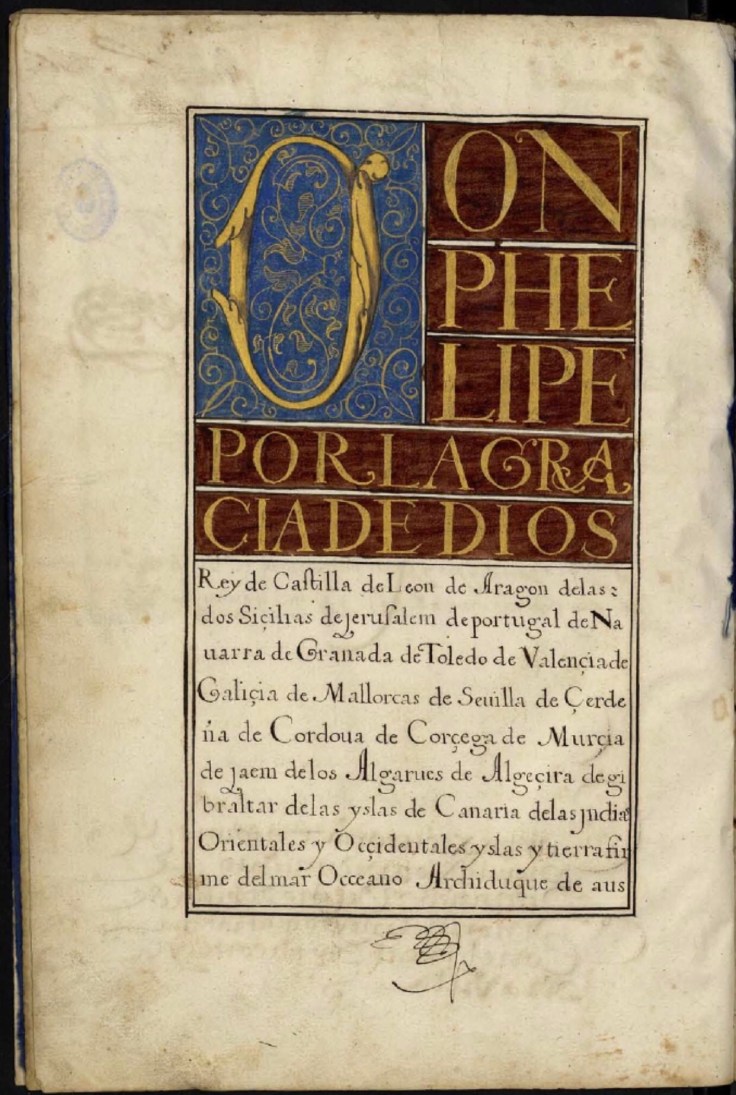 DON
PHE
LIPE
POR LA GRA
CIA DE DIOS
Rey de Castilla de Leon de Aragon delas
dos Siçilias de jerusalem de portugal de Na
uarra de Granada de Toledo de Valençia de
Galiçia de Mallorcas de Seuilla de Çerde
ña de Cordoua de Corçega de Murçia
de jaem delos Algarues de Algeçira de gi
braltar delas yslas de Canaria delas jndias
Orientales y Occidentales yslas y tierra fir
me del mar Occeano Archiduque de aus